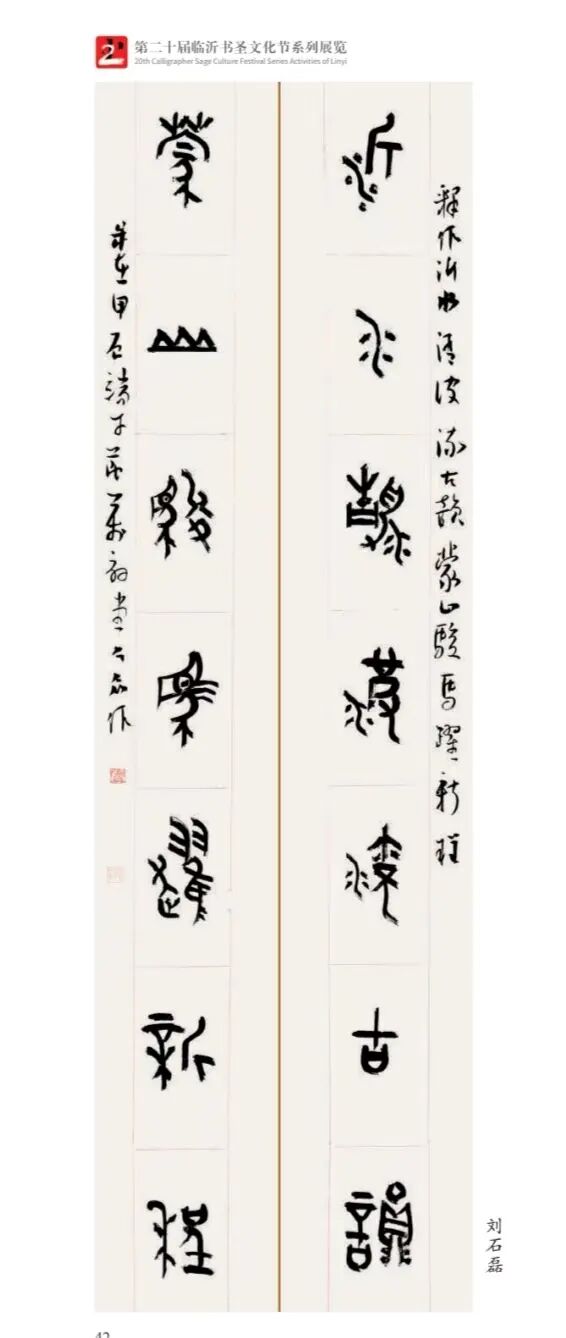 第二十届临沂书圣文化节系列展览
20th Calligrapher Sage Culture Festival Series Activities of Linyi
释作沂水清波流古韵蒙山骏马跃新程
沂水清波流古韻
蒙山駿馬躍新程
石磊作
刘石磊
42